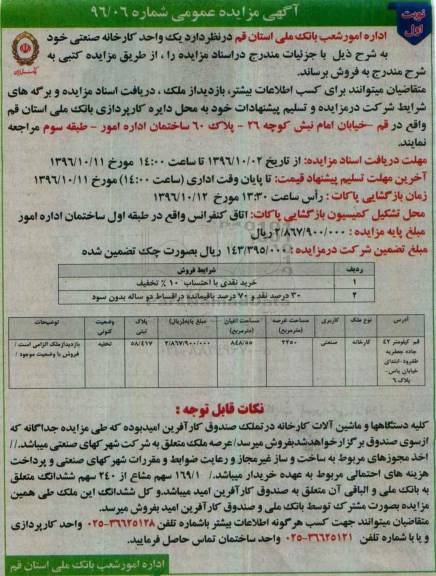 آگهی مزایده عمومی شماره ۹۶/۰۶
نوبت اول
اداره امور شعب بانک ملی استان قم در نظر دارد یک واحد کارخانه صنعتی خود
به شرح ذیل با جزئیات مندرج در اسناد مزایده را ، از طریق مزایده کتبی به
شرح مندرج به فروش برساند.
متقاضیان میتوانند برای کسب اطلاعات بیشتر، بازدید از ملک ، دریافت اسناد مزایده و برگه های
شرایط شرکت در مزایده و تسلیم پیشنهادات خود به محل دایره کارپردازی بانک ملی استان قم
واقع در قم -خیابان امام نبش کوچه ۲۶ - پلاک ۶۰ ساختمان اداره امور - طبقه سوم مراجعه
نمایند.
مهلت دریافت اسناد مزایده: از تاریخ ۱۳۹۶/۱۰/۰۲ تا ساعت ۱۴:۰۰ مورخ ۱۳۹۶/۱۰/۱۱
آخرین مهلت تسلیم پیشنهاد قیمت: تا پایان وقت اداری (ساعت ۱۴:۰۰) مورخ ۱۳۹۶/۱۰/۱۱
زمان بازگشایی پاکات : رأس ساعت ۱۳:۳۰ مورخ ۱۳۹۶/۱۰/۱۲
محل تشکیل کمیسیون بازگشایی پاکات: اتاق کنفرانس واقع در طبقه اول ساختمان اداره امور
مبلغ پایه مزایده : ۲/۸۶۷/۹۰۰/۰۰۰ ریال
مبلغ تضمین شرکت در مزایده : ۱۴۳/۳۹۵/۰۰۰ ریال بصورت چک تضمین شده
ردیف شرایط فروش
۱ خرید نقدی با احتساب ۱۰ ٪ تخفیف
۲ ۳۰ درصد نقد و ۷۰ درصد باقیمانده در اقساط دو ساله بدون سود
آدرس نوع ملک کاربری مساحت عرصه (مترمربع) مساحت اعیان (مترمربع) مبلغ پایه(ریال) پلاک ثبتی وضعیت کنونی توضیحات
قم کیلومتر ۴۲ کارخانه صنعتی ۲۲۵۰ ۸۴۸/۵۵ ۲/۸۶۷/۹۰۰/۰۰۰ ۵۸/۴۱۷ تخلیه بازدید از ملک الزامی است /
جاده جعفریه فروش با وضعیت موجود /
طغرود-ابتدای
خیابان یاس-
پلاک ۶
نکات قابل توجه :
کلیه دستگاهها و ماشین آلات کارخانه در تملک صندوق کارآفرین امید بوده که طی مزایده جداگانه که
از سوی صندوق برگزار خواهد شد بفروش میرسد/ عرصه ملک متعلق به شرکت شهرکهای صنعتی میباشد.//
اخذ مجوزهای مربوط به ساخت و ساز غیرمجاز و رعایت ضوابط و مقررات شهرکهای صنعتی و پرداخت
هزینه های احتمالی مربوط به عهده خریدار میباشد./ ۱۶۹/۱ سهم مشاع از ۲۴۰ سهم ششدانگ متعلق
به بانک ملی و الباقی آن متعلق به صندوق کارآفرین امید میباشد.و کل ششدانگ این ملک طی همین
مزایده بصورت مشترک توسط بانک ملی و صندوق کارآفرین امید بفروش میرسد.
متقاضیان میتوانند جهت کسب هرگونه اطلاعات بیشتر با شماره تلفن ۳۶۶۲۵۱۲۸-۰۲۵ واحد کارپردازی
و یا با شماره تلفن ۳۶۶۲۵۱۲۱-۰۲۵ واحد ساختمان تماس حاصل فرمایید.
اداره امور شعب بانک ملی استان قم